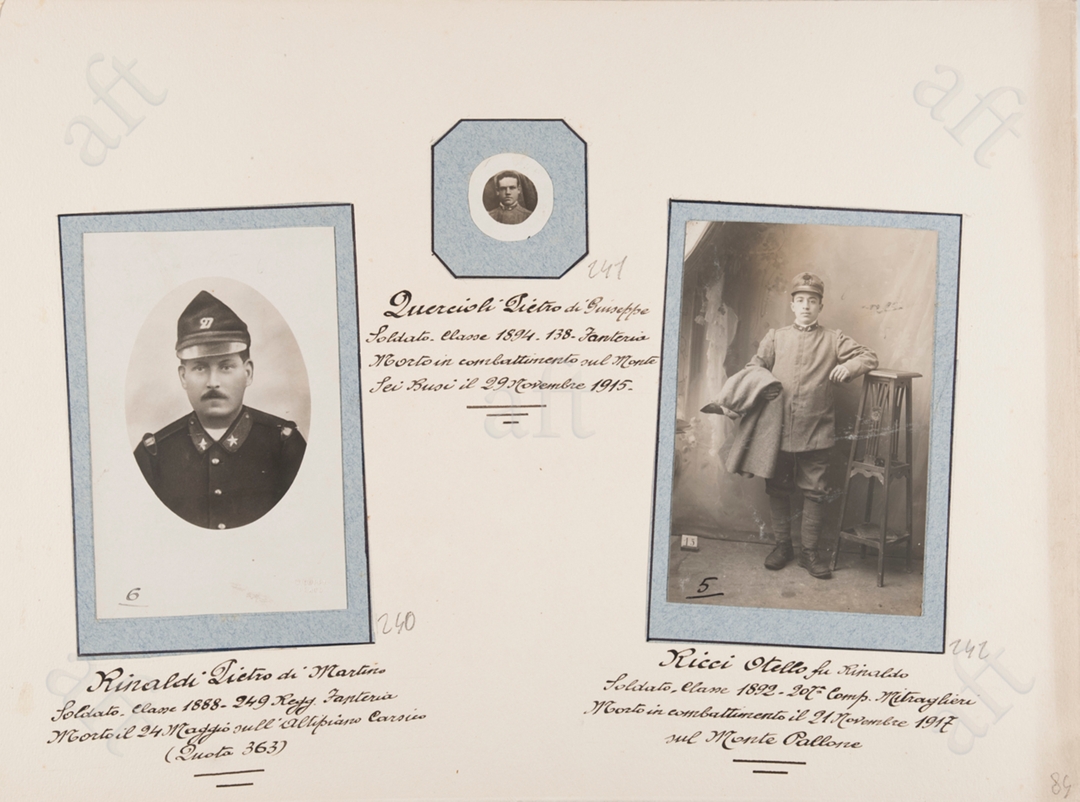 aft
aft
27
6
240
Rinaldi Pietro di Martino
Soldato. Classe 1888 - 249 Regg. Fanteria
Morto il 24 Maggio sull'Altipiano Carsico
(Quota 363)
241
Quercioli Pietro di Giuseppe
Soldato. Classe 1894 - 138 - Fanteria
Morto in combattimento sul Monte
Sei Busi il 29 Novembre 1915 -
aft
13
5
242
Ricci Otello fu Rinaldo
Soldato, Classe 1892 - 207ª Comp. Mitraglieri
Morto in combattimento il 21 Novembre 1917
sul Monte Pallone
aft
aft
84